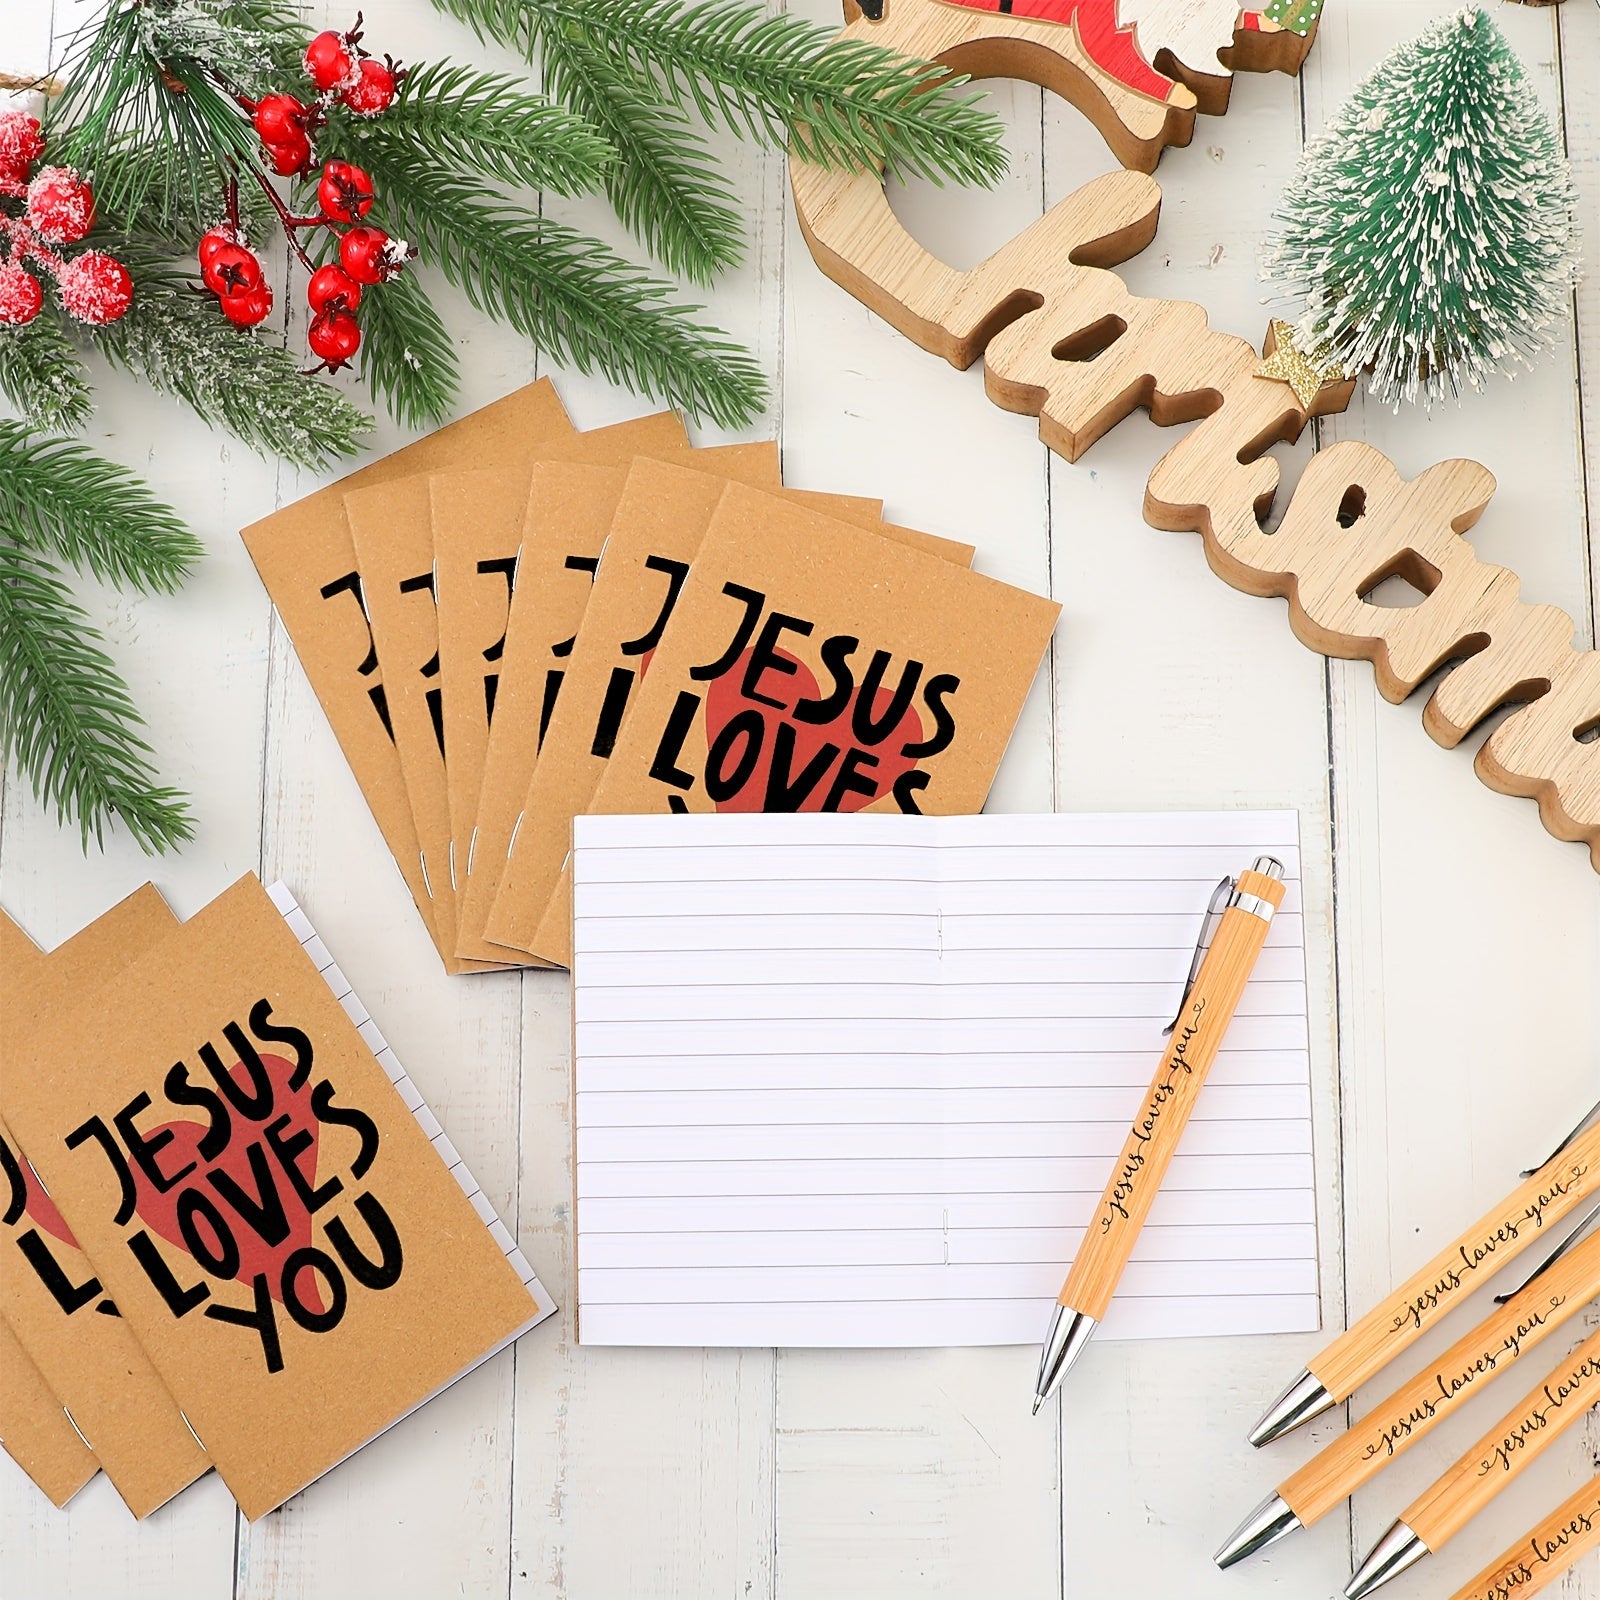 Christm
JESUS
LOVES
JESUS
LOVES
YOU
jesus loves you
jesus loves you
jesus loves you
jesus loves
jesus loves